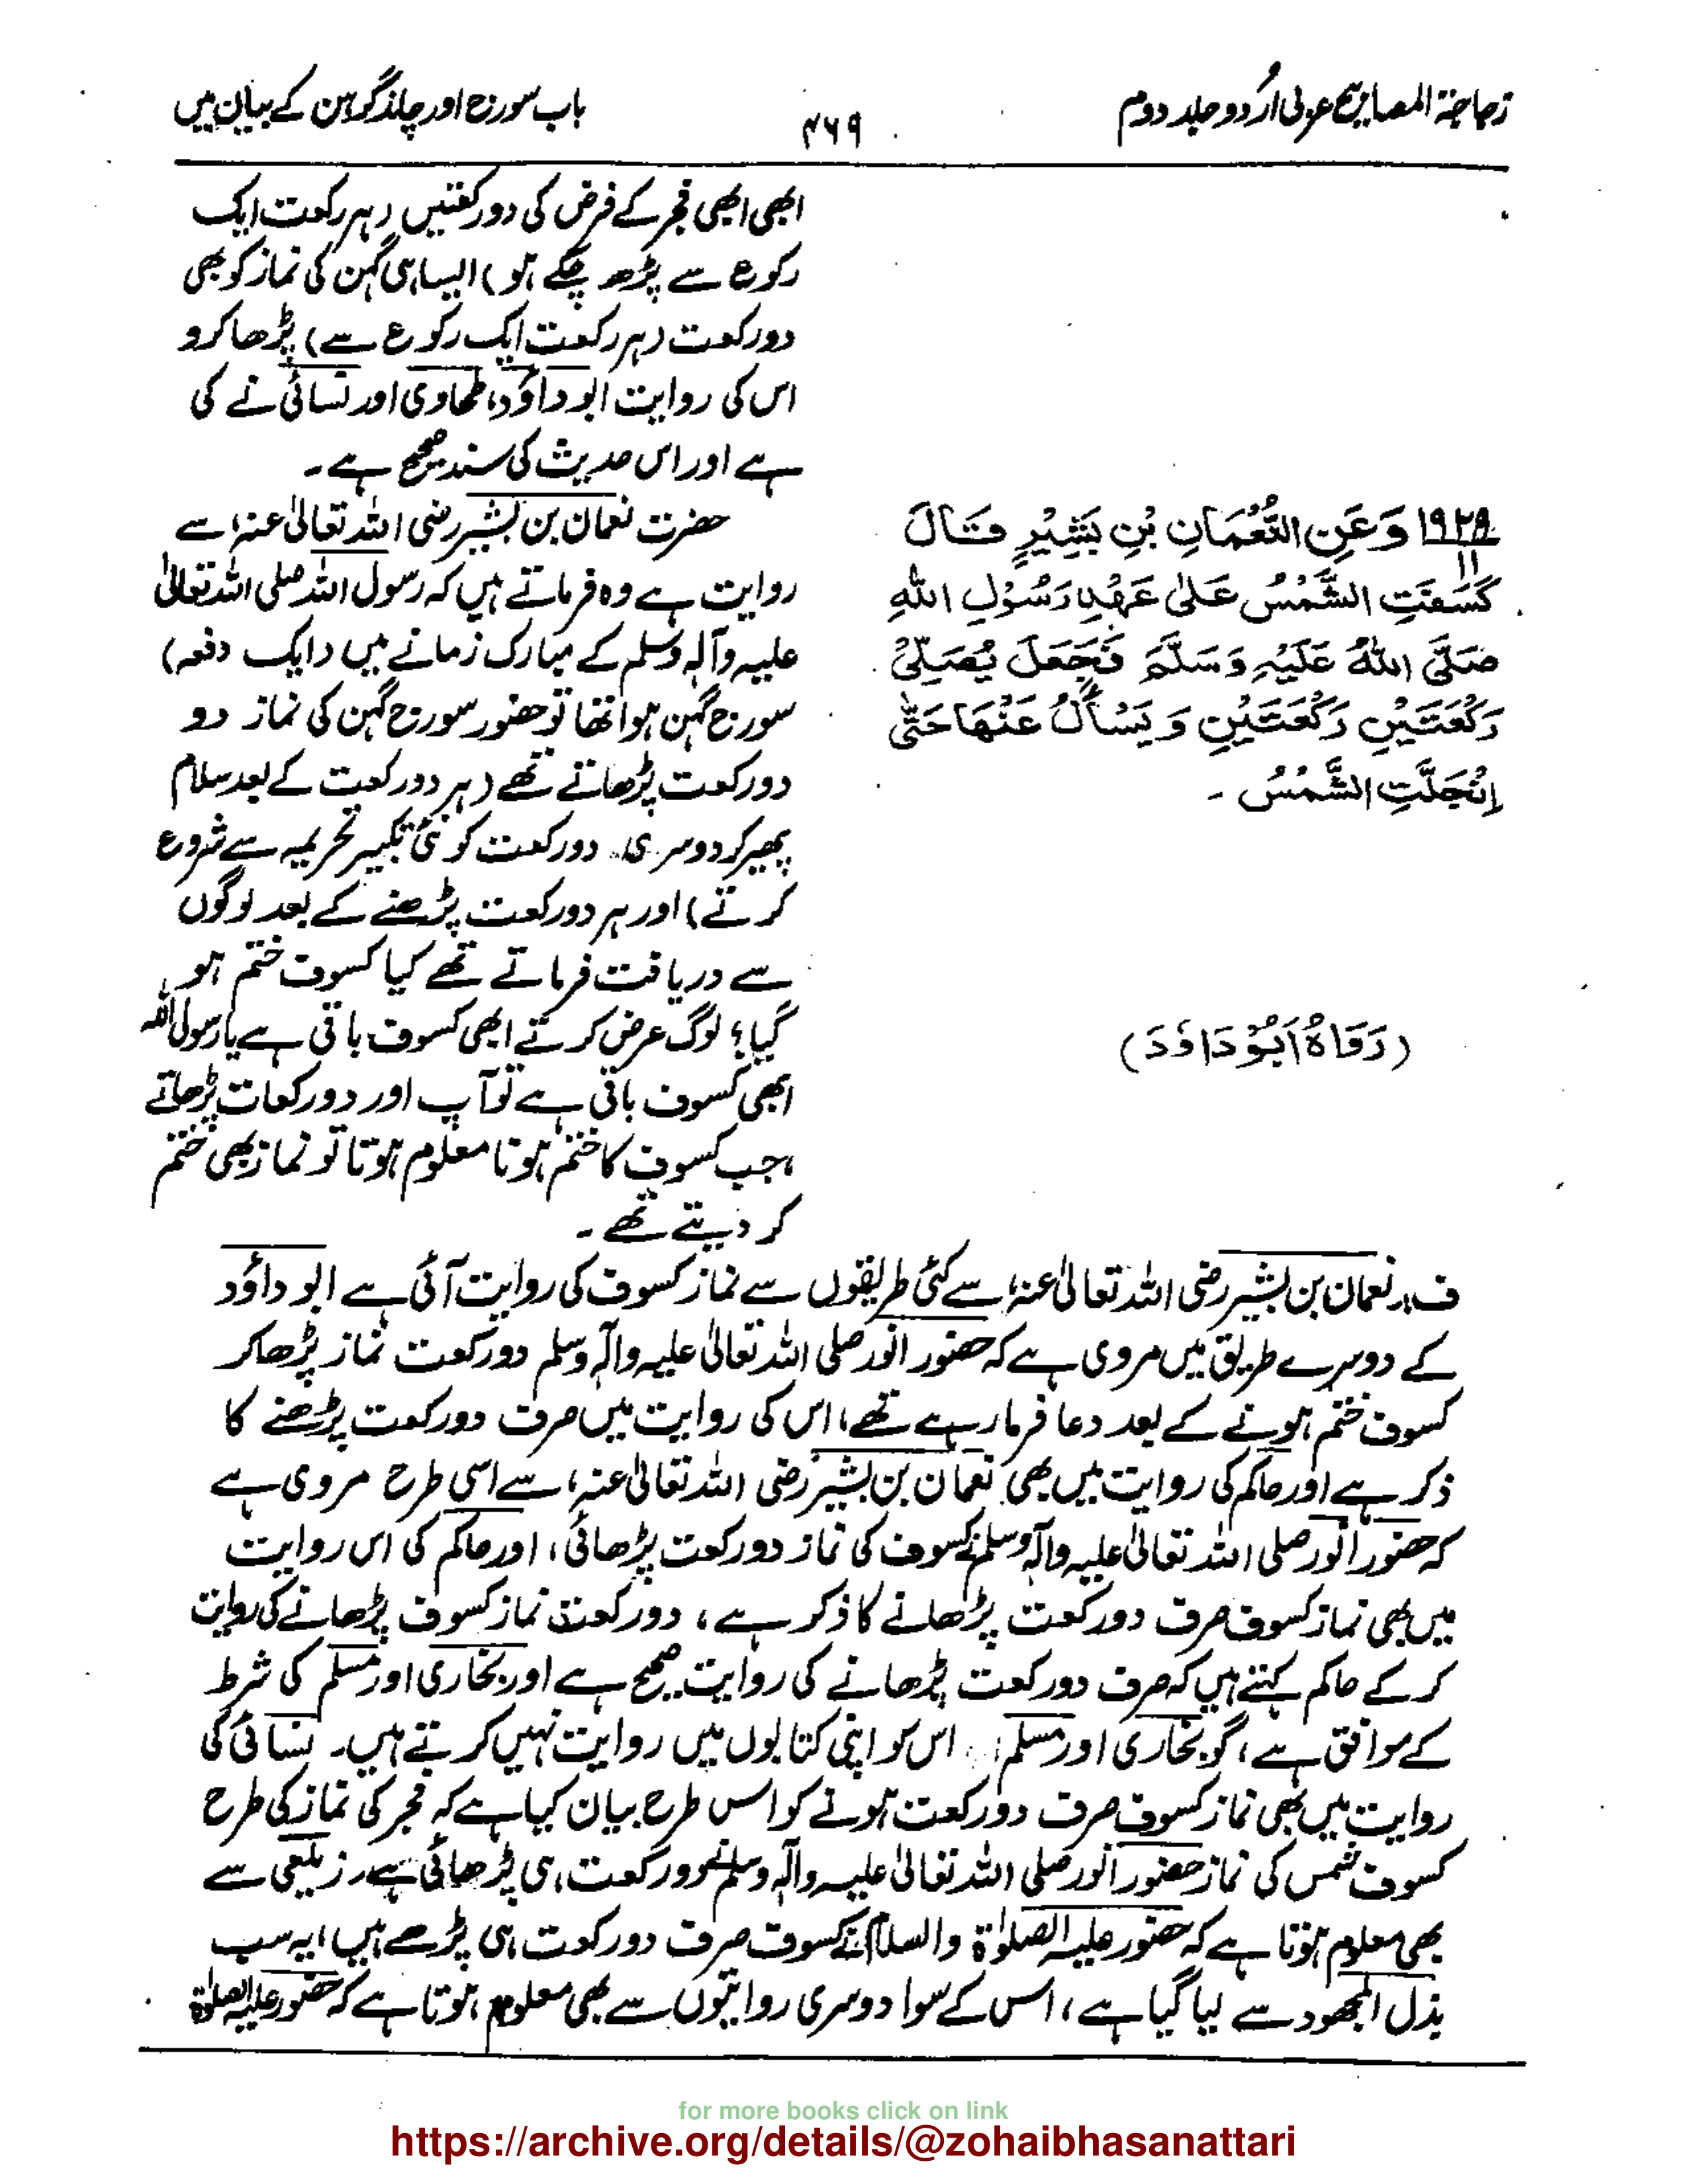 زجاجۃ المصابیح عربی اردو جلد دوم
۴۶۹
باب سورج اور چاند گرہن کے بیان میں
ابھی ابھی فجر کے فرض کی دو رکعتیں (ہر رکعت ایک
رکوع سے پڑھ چکے ہو) ایسا ہی گہن کی نماز کو بھی
دو رکعت (ہر رکعت ایک رکوع سے) پڑھا کرو
اس کی روایت ابو داؤد، طحاوی اور نسائی نے کی
ہے اور اس حدیث کی سند صحیح ہے۔
۱۹۲۹ وَعَنِ النُّعْمَانِ بْنِ بَشِيْرٍ قَالَ
۱۱
كَسَفَتِ الشَّمْسُ عَلٰى عَهْدِ رَسُوْلِ اللهِ
صَلَّى اللهُ عَلَيْهِ وَسَلَّمَ فَجَعَلَ يُصَلِّيْ
رَكْعَتَيْنِ رَكْعَتَيْنِ وَيَسْأَلُ عَنْهَا حَتّٰى
اِنْجَلَتِ الشَّمْسُ ۔
(رَوَاهُ اَبُوْ دَاوٗدَ)
حضرت نعمان بن بشیر رضی اللہ تعالیٰ عنہ، سے
روایت ہے وہ فرماتے ہیں کہ رسول اللہ صلی اللہ تعالیٰ
علیہ وآلہ وسلم کے مبارک زمانے میں (ایک دفعہ)
سورج گہن ہوا تھا تو حضور سورج گہن کی نماز دو
دو رکعت پڑھاتے تھے (ہر دو رکعت کے بعد سلام
پھیر کر دوسری دو رکعت کو نئی تکبیر تحریمہ سے شروع
کرتے) اور ہر دو رکعت پڑھنے کے بعد لوگوں
سے دریافت فرماتے تھے کیا کسوف ختم ہو
گیا؟ لوگ عرض کرتے ابھی کسوف باقی ہے یا رسول اللہ
ابھی کسوف باقی ہے تو آپ اور دو رکعات پڑھاتے
،جب کسوف کا ختم ہونا معلوم ہوتا تو نماز بھی ختم
کر دیتے تھے ۔
ف: نعمان بن بشیر رضی اللہ تعالیٰ عنہ، سے کئی طریقوں سے نماز کسوف کی روایت آئی ہے ابو داؤد
کے دوسرے طریق میں مروی ہے کہ حضور انور صلی اللہ تعالیٰ علیہ وآلہ وسلم دو رکعت نماز پڑھا کر
کسوف ختم ہونے کے بعد دعا فرما رہے تھے، اس کی روایت میں صرف دو رکعت پڑھنے کا
ذکر ہے اور حاکم کی روایت میں بھی نعمان بن بشیر رضی اللہ تعالیٰ عنہ، سے اسی طرح مروی ہے
کہ حضور انور صلی اللہ تعالیٰ علیہ وآلہ وسلم نے کسوف کی نماز دو رکعت پڑھائی، اور حاکم کی اس روایت
میں بھی نماز کسوف صرف دو رکعت پڑھانے کا ذکر ہے، دو رکعت نماز کسوف پڑھانے کی روایت
کر کے حاکم کہتے ہیں کہ صرف دو رکعت پڑھانے کی روایت صحیح ہے اور بخاری اور مسلم کی شرط
کے موافق ہے، گو بخاری اور مسلم اس کو اپنی کتابوں میں روایت نہیں کرتے ہیں۔ نسائی کی
روایت میں بھی نماز کسوف صرف دو رکعت ہونے کو اس طرح بیان کیا ہے کہ فجر کی نماز کی طرح
کسوف شمس کی نماز حضور انور صلی اللہ تعالیٰ علیہ وآلہ وسلم نے دو رکعت ہی پڑھائی ہے، زیلعی سے
بھی معلوم ہوتا ہے کہ حضور علیہ الصلوٰۃ والسلام نے کسوف صرف دو رکعت ہی پڑھے ہیں ایہ سب
بذل المجھود سے لیا گیا ہے، اس کے سوا دوسری روایتوں سے بھی معلوم ہوتا ہے کہ حضور علیہ الصلوٰۃ
for more books click on link
https://archive.org/details/@zohaibhasanattari